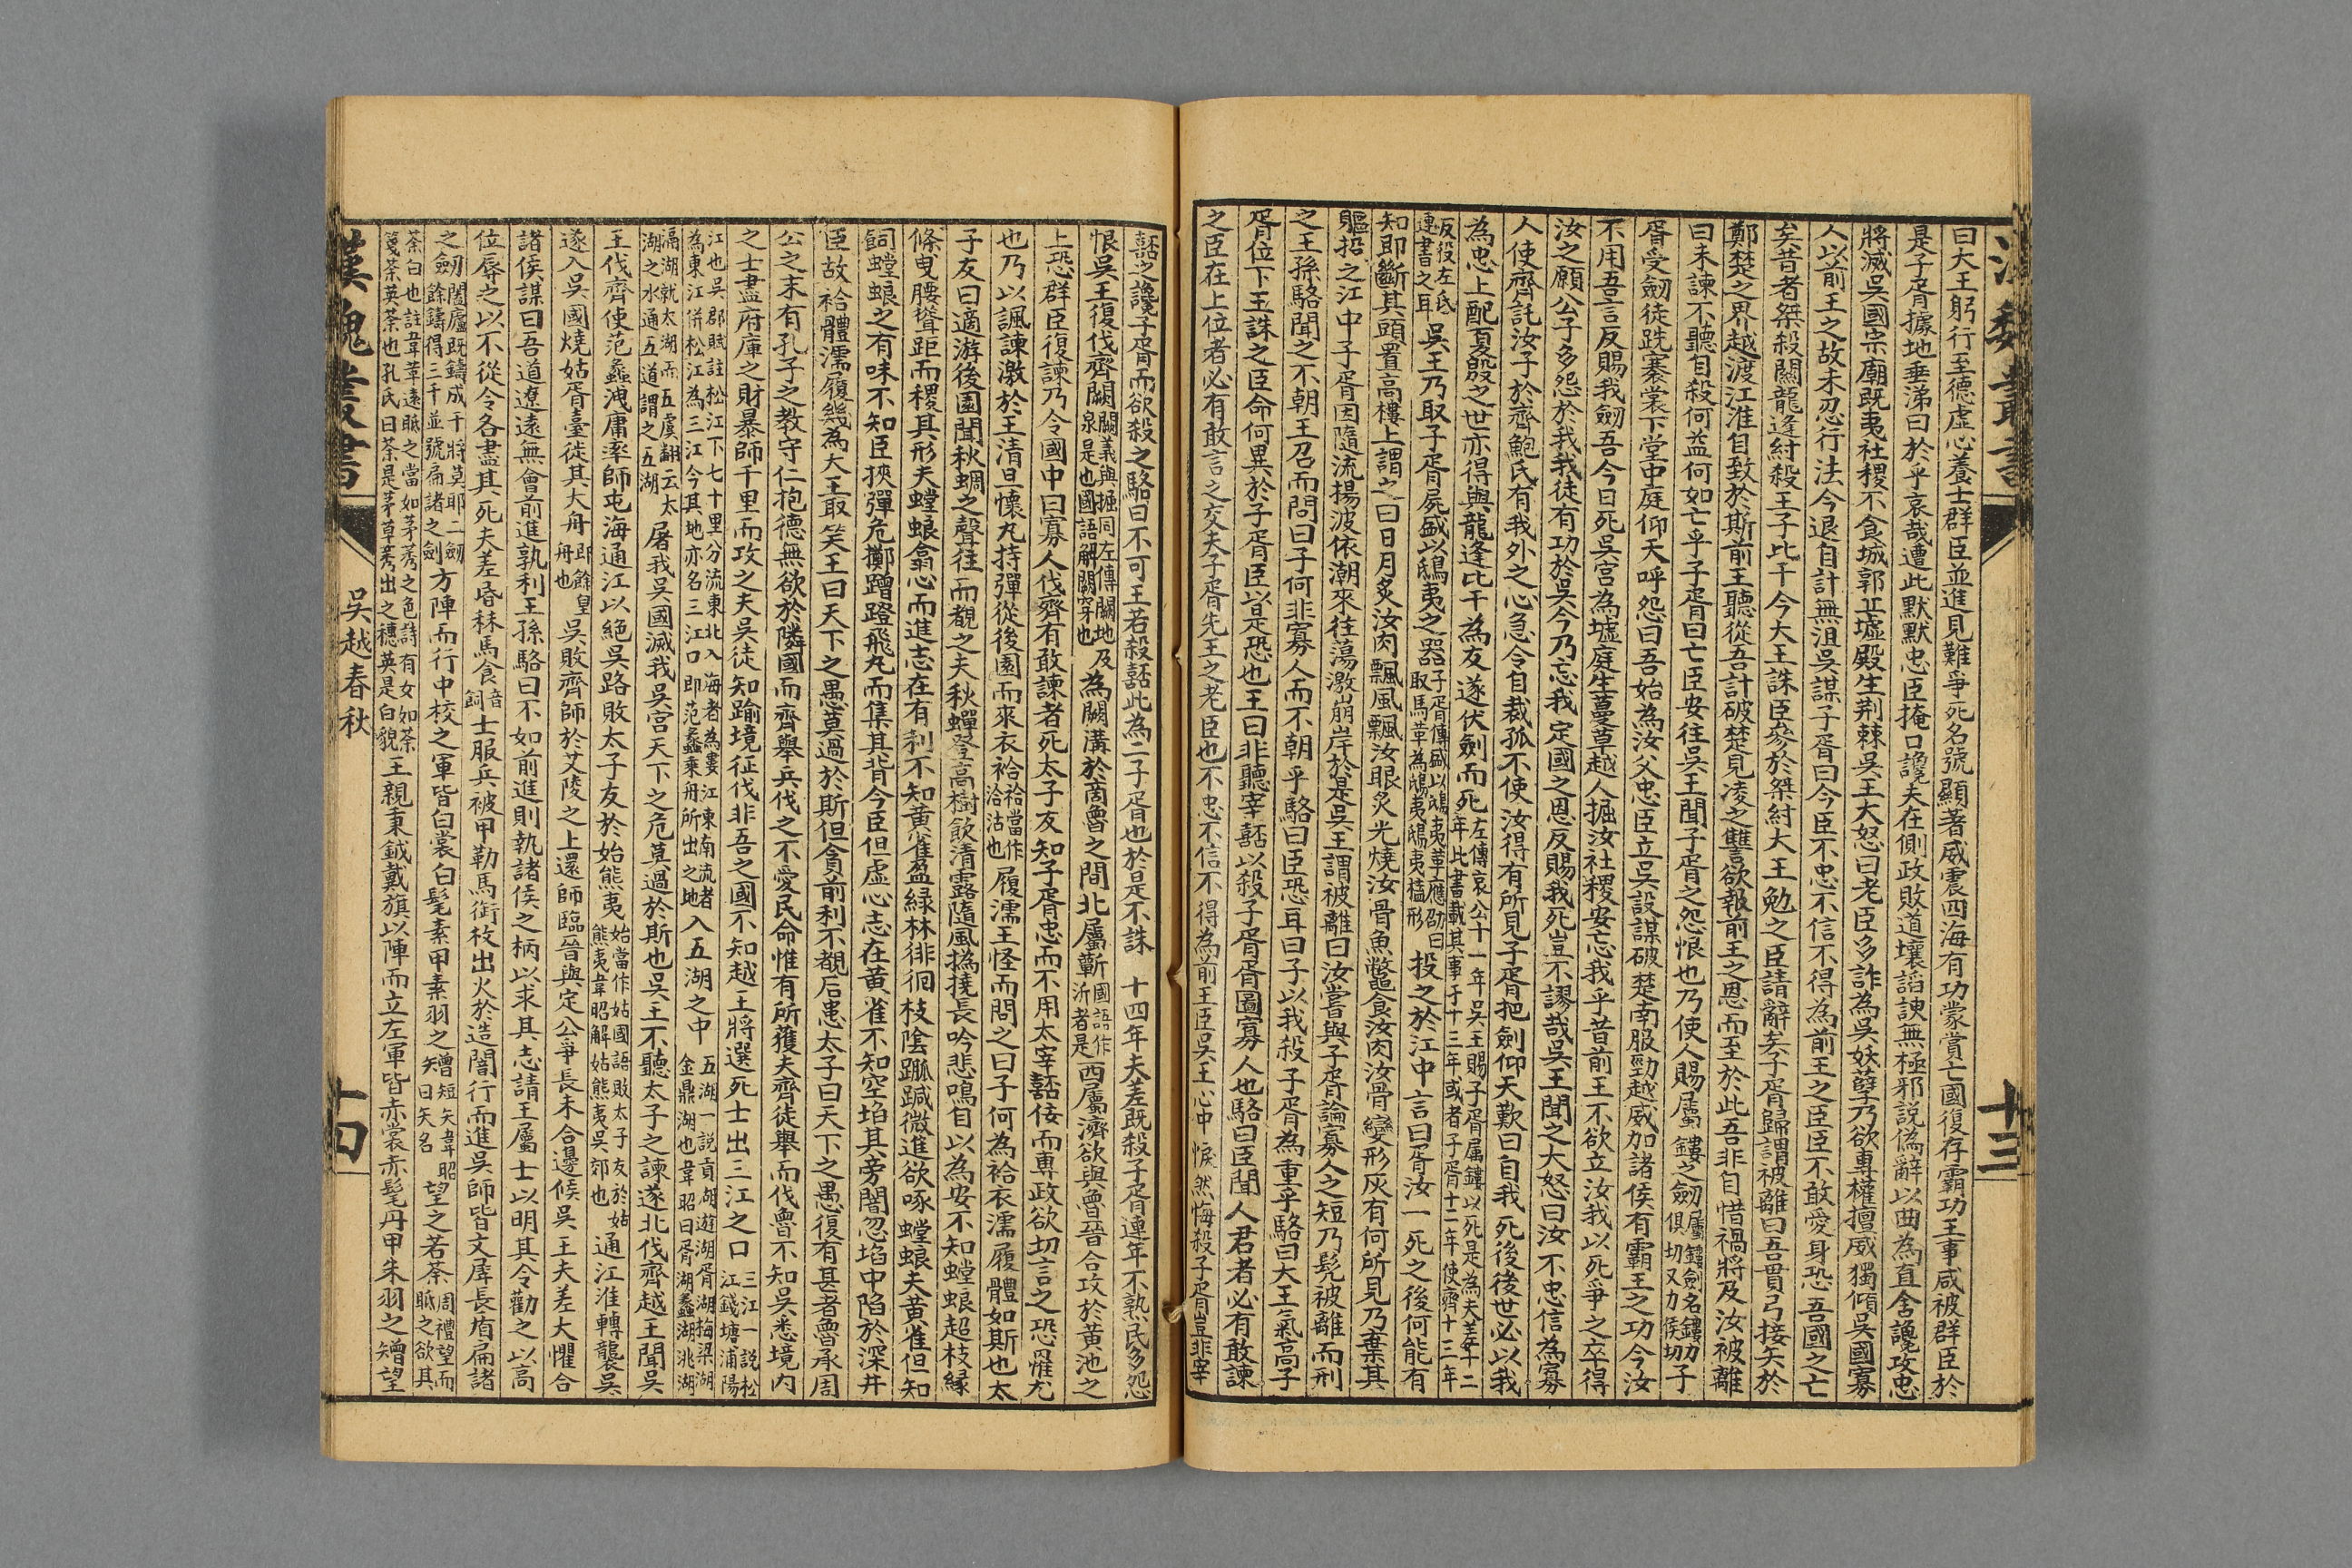 曰大王躬行至德虛心養士群臣並進見難爭死名號顯著威震四海有功蒙賞亡國復存霸功王事咸被群臣於
是子胥據地垂涕曰於乎哀哉遭此默默忠臣掩口讒夫在側政敗道壞諂諛無極邪說偽辭以曲為直舍讒攻忠
將滅吳國宗廟既夷社稷不食城郭丘墟殿生荊棘吳王大怒曰老臣多詐為吳妖孽乃欲專權擅威獨傾吳國寡
人以前王之故未忍行法今退自計無沮吳謀子胥曰今臣不忠不信不得為前王之臣臣不敢愛身恐吾國之亡
矣昔者桀殺關龍逢紂殺王子比干今大王誅臣參於桀紂大王勉之臣請辭矣子胥歸謂被離曰吾貫弓接矢於
鄭楚之界越渡江淮自致於斯前王聽從吾計破楚見凌之讐欲報前王之恩而至於此吾非自惜禍將及汝被離
曰未諫不聽自殺何益何如亡乎子胥曰亡臣安往吳王聞子胥之怨恨也乃使人賜屬鏤之劒屬鏤劍名鏤力俱切又力侯切子
胥受劒徒跣褰裳下堂中庭仰天呼怨曰吾始為汝父忠臣立吳設謀破楚南服勁越威加諸侯有霸王之功今汝
不用吾言反賜我劒吾今日死吳宮為墟庭生蔓草越人掘汝社稷安忘我乎昔前王不欲立汝我以死爭之卒得
汝之願公子多怨於我我徒有功於吳今乃忘我定國之恩反賜我死豈不謬哉吳王聞之大怒曰汝不忠信為寡
人使齊託汝子於齊鮑氏有我外之心急令自裁孤不使汝得有所見子胥把劍仰天歎曰自我死後後世必以我
為忠上配夏殷之世亦得與龍逢比干為友遂伏劍而死左傳哀公十一年吳王賜子胥屬鏤以死是為夫差十二年此書載其事于十三年或者子胥十二年使齊十三年
反役左氏連書之耳吳王乃取子胥屍盛以鴟夷之器子胥傳盛以鴟夷革應劭曰取馬革為鴟夷鴟夷榼形投之於江中言曰胥汝一死之後何能有
知即斷其頭置高樓上謂之曰日月炙汝肉飄風飄汝眼炎光燒汝骨魚鼈食汝肉汝骨變形灰有何所見乃棄其
軀投之江中子胥因隨流揚波依潮來往蕩激崩岸於是吳王謂被離曰汝嘗與子胥論寡人之短乃髡被離而刑
之王孫駱聞之不朝王召而問曰子何非寡人而不朝乎駱曰臣恐耳曰子以我殺子胥為重乎駱曰大王氣高子
胥位下王誅之臣命何異於子胥臣以是恐也王曰非聽宰嚭以殺子胥胥圖寡人也駱曰臣聞人君者必有敢諫
之臣在上位者必有敢言之交夫子胥先王之老臣也不忠不信不得為前王臣吳王心中悷然悔殺子胥豈非宰
嚭之讒子胥而欲殺之駱曰不可王若殺嚭此為二子胥也於是不誅 十四年夫差既殺子胥連年不熟民多怨
恨吳王復伐齊闕闕義與掘同左傳闕地及泉是也國語解闕穿也為闕溝於商魯之間北屬蘄國語作沂者是西屬濟欲與魯晉合攻於黃池之
上恐群臣復諫乃令國中曰寡人伐齊有敢諫者死太子友知子胥忠而不用太宰嚭佞而專政欲切言之恐罹尤
也乃以諷諫激於王清旦懷丸持彈從後園而來衣袷袷當作洽沾也履濡王怪而問之曰子何為袷衣濡履體如斯也太
子友曰適游後園聞秋蜩之聲往而觀之夫秋蟬登高樹飲清露隨風撝撓長吟悲鳴自以為安不知螳螂超枝緣
條曳腰聳距而稷其形夫螳螂翕心而進志在有利不知黃雀盈綠林徘徊枝陰踙踂微進欲啄螳螂夫黃雀但知
飼螳螂之有味不知臣挾彈危擲蹭蹬飛丸而集其背今臣但虛心志在黃雀不知空埳其旁闇忽埳中陷於深井
臣故袷體濡履幾為大王取笑王曰天下之愚莫過於斯但貪前利不覩后患太子曰天下之愚復有甚者魯承周
公之末有孔子之教守仁抱德無欲於隣國而齊舉兵伐之不愛民命惟有所獲夫齊徒舉而伐魯不知吳悉境內
之士盡府庫之財暴師千里而攻之夫吳徒知踰境征伐非吾之國不知越王將選死士出三江之口三江一說松江錢塘浦陽
江也吳郡賦註松江下七十里分流東北入海者為婁江東南流者為東江併松江為三江今其地亦名三江口即范蠡乘舟所出之地入五湖之中五湖一說貢湖遊湖胥湖梅梁湖金鼎湖也韋昭曰胥湖蠡湖洮湖
滆湖就太湖而五虞翻云太湖之水通五道謂之五湖屠我吳國滅我吳宮天下之危莫過於斯也吳王不聽太子之諫遂北伐齊越王聞吳
王伐齊使范蠡洩庸率師屯海通江以絕吳路敗太子友於始熊夷始當作姑國語敗太子友於姑熊夷韋昭解姑熊夷吳郊也通江淮轉襲吳
遂入吳國燒姑胥臺徙其大舟即餘皇舟也吳敗齊師於艾陵之上還師臨晉與定公爭長未合邊候吳王夫差大懼合
諸侯謀曰吾道遼遠無會前進孰利王孫駱曰不如前進則執諸侯之柄以求其志請王屬士以明其令勸之以高
位辱之以不從令各盡其死夫差昏秣馬食音飼士服兵被甲勒馬銜枚出火於造闇行而進吳師皆文犀長盾扁諸
之劒闔廬既鑄成干將莫耶二劒餘鑄得三千並號扁諸之劍方陣而行中校之軍皆白裳白髦素甲素羽之矰矰短矢韋昭曰矢名望之若荼周禮望而眡之欲其
荼白也註韋韋遠眡之當如茅莠之色詩有女如荼箋荼英荼也孔氏曰荼是茅草秀出之穗英是白貌王親秉鉞戴旗以陣而立左軍皆赤裳赤髦丹甲朱羽之矰望
漢魏叢書
吳越春秋
十三
十四